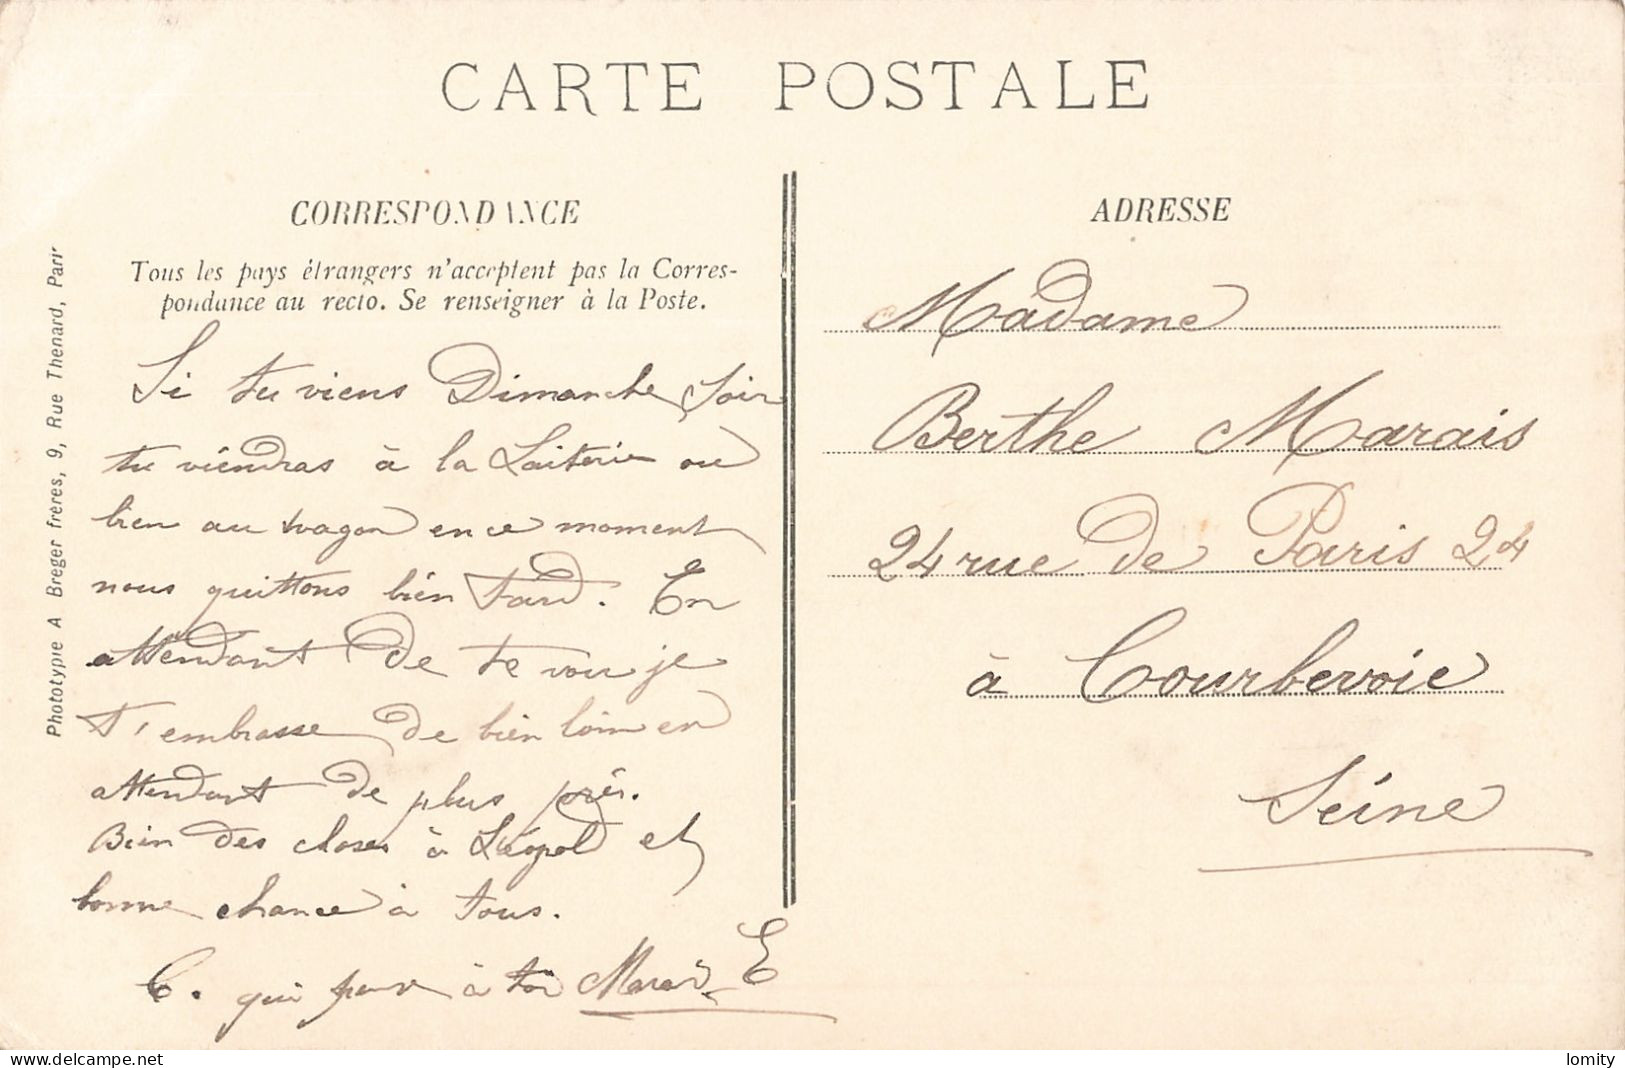 CARTE POSTALE
CORRESPONDANCE
Tous les pays étrangers n'acceptent pas la Corres-
pondance au recto. Se renseigner à la Poste.
Si tu viens Dimanche soir
tu viendras à la Laiterie ou
bien au wagon en ce moment
nous quittons bien tard. En
attendant de te voir je
t'embrasse de bien loin en
attendant de plus près.
Bien des choses à Léopold et
bonne chance à tous.
C. qui pense à toi Marais E
ADRESSE
Madame
Berthe Marais
24 rue de Paris 24
à Courbevoie
Seine
Phototypie A Breger frères, 9, Rue Thenard, Paris
delcampe.net
lomity